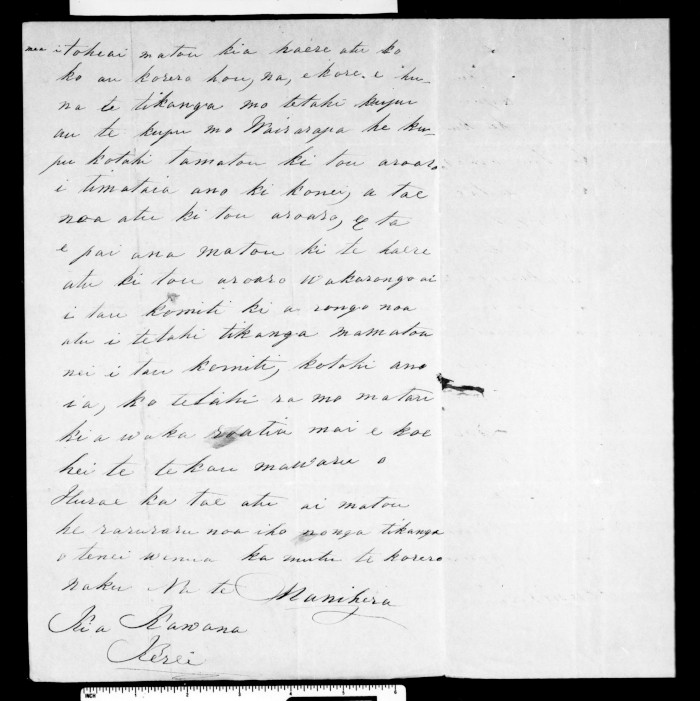 mea i tohe ai matou kia haere atu ko
ko au korero hou, na, e kore e hu-
na te tikanga mo tetahi kupu
au te kupu mo Wairarapa he ku-
pu kotahi tamatou ki tou aroaro
i timataia ano ki konei, a tae
noa atu ki tou aroaro, E ta
e pai ana matou ki te haere
atu ki tou aroaro wakarongo ai
i tau komiti ki a rongo noa
atu i tetahi tikanga mamatou
nei i tau komiti, kotahi ano
ia, ko tetahi ra mo matou
kia waka roatia mai e koe
hei te tekau mawaru o
Hurae ka tae atu ai matou
he raruraru noa iho nonga tikanga
o tenei wenua ka mutu te korero
naku Na te Manihera
Kia Kawana
Kerei
INCH 1 2 3